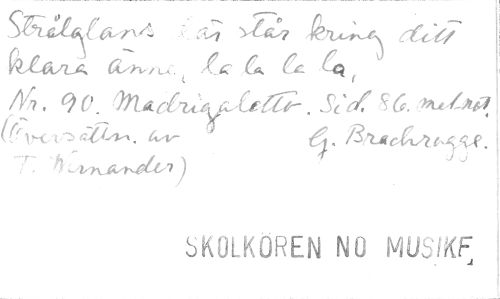 Strålglans här står kring ditt
klara änne, la la la la,
Nr. 90. Madrigaletto. Sid. 86. mel.not.
(Översättn. av G. Brachrogge.
T. Wernander)
SKOLKÖREN NO MUSIKF.